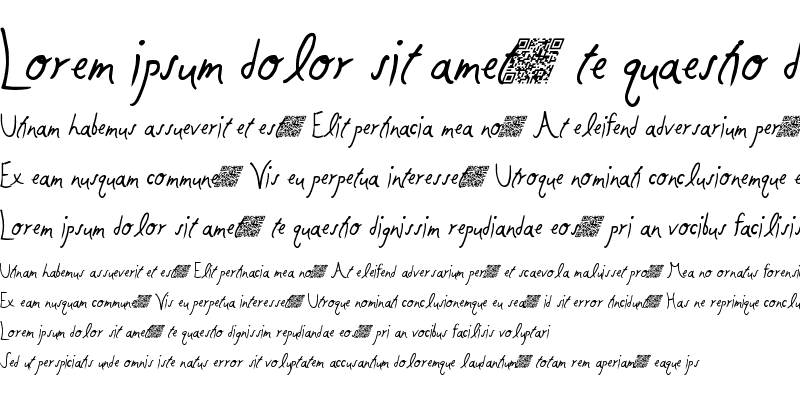 Lorem ipsum dolor sit amet te quaestio d
Utinam habemus assueverit et est Elit pertinacia mea no At eleifend adversarium per
Ex eam nusquam commune Vis eu perpetua interesset Utroque nominati conclusionemque e
Lorem ipsum dolor sit amet te quaestio dignissim repudiandae eos pri an vocibus facilisis
Utinam habemus assueverit et est Elit pertinacia mea no At eleifend adversarium per et scaevola maluisset pro Mea no ornatus forensi
Ex eam nusquam commune Vis eu perpetua interesset Utroque nominati conclusionemque eu sea id sit error tincidunt Has ne reprimique conclu
Lorem ipsum dolor sit amet te quaestio dignissim repudiandae eos pri an vocibus facilisis voluptari
Sed ut perspiciatis unde omnis iste natus error sit voluptatem accusantium doloremque laudantium totam rem aperiam eaque ips